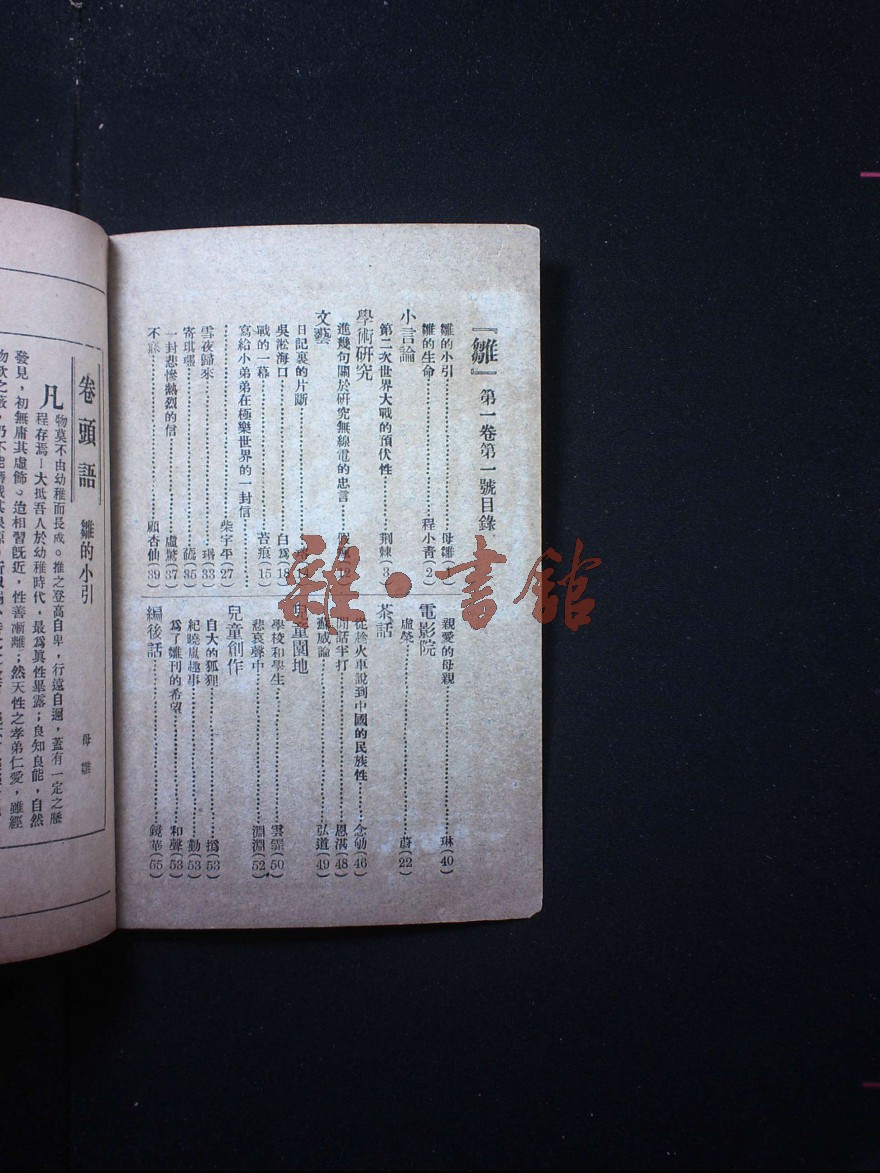 『雛』第一卷第一號目錄
雛的小引 母雛(1)
雛的生命 程小青(2)
小言論
第二次世界大戰的預伏性 荆棘(3)
學術研究
進幾句關於研究無線電的忠言 (12)
文藝
日記裏的片斷 (14)
吳淞海口 白爲(18)
戰的一幕 苔痕(15)
寫給小弟弟在極樂世界的一封信
柴宇平(27)
雪夜歸來 (33)
寄琪瑙 (35)
一封悲慘熱烈的信 盧驚(37)
不寐 顧杏仙(39)
親愛的母親 琳(40)
電影院
盧癸 蔚(22)
茶話
從趁火車說到中國的民族性 念劬(46)
閒話半打 恩湛(48)
蘇威論 弘道(49)
兒童園地
學校和學生 雲霏(50)
悲哀聲中 淵淵(52)
兒童創作
自大的狐狸 撝(53)
紀曉嵐趣事 勤(53)
爲了雛刊的希望 和聲(53)
編後話 鏡華(55)
雜·書館
卷頭語
雛的小引
母雛
凡物莫不由幼稚而長成。推之登高自卑,行遠自邇,蓋有一定之歷
程存焉—大抵吾人於幼稚時代,最爲眞性畢露;良知良能,自然
發見,初無庸其虛飾。迨相習旣近,性善漸離;然天性之孝弟仁愛,雖經